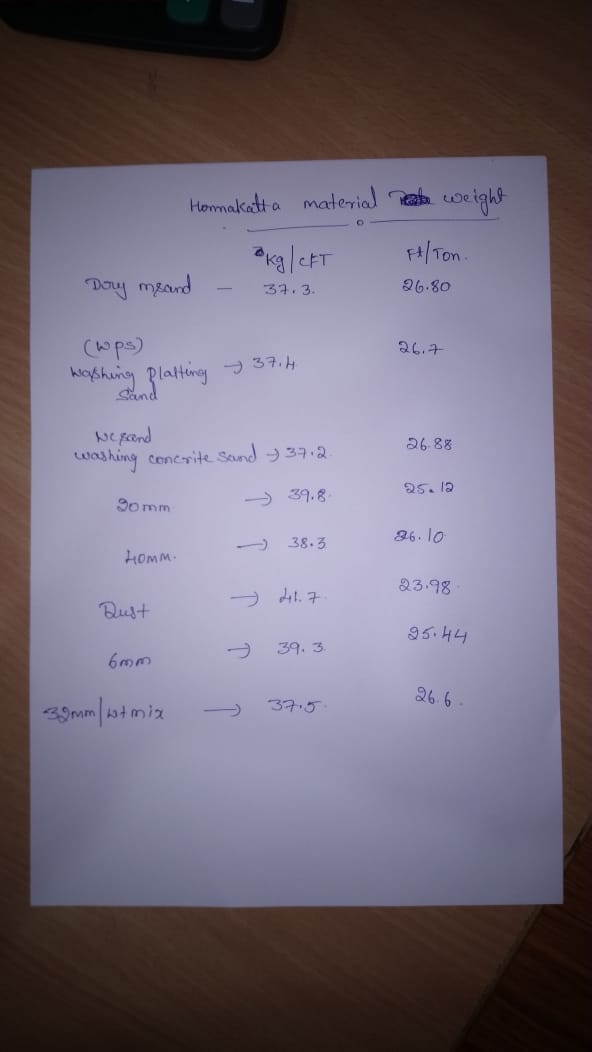 Honnakatta material weight
Kg/CFT Ft/Ton.
Dry msand — 37.3. 26.80
(WPS)
Washing Platting → 37.4 26.7
Sand
Wcsand
washing concrite sand → 37.2 26.88
20mm → 39.8 25.12
40mm. → 38.3 26.10
Dust → 41.7 23.98
6mm → 39.3 25.44
32mm/wtmix → 37.5 26.6